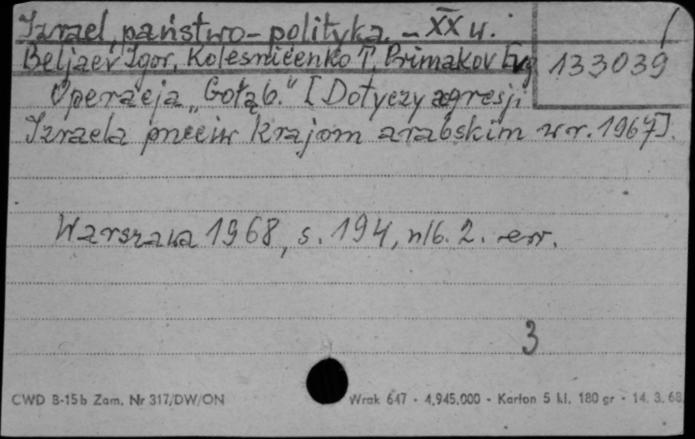 Izrael, państwo - polityka. - XX w.
Beljaev Igor, Kolesničenko T, Primakov Evg 133039
Operacja „Gołąb." [Dotyczy agresji
Izraela przeciw krajom arabskim w r. 1967].
Warszawa 1968, s. 194, nlb. 2. err.
3
CWD B-15b Zam. Nr 317/DW/ON Wrak 647 - 4.945.000 - Karton 5 kl. 180 gr - 14. 3. 68